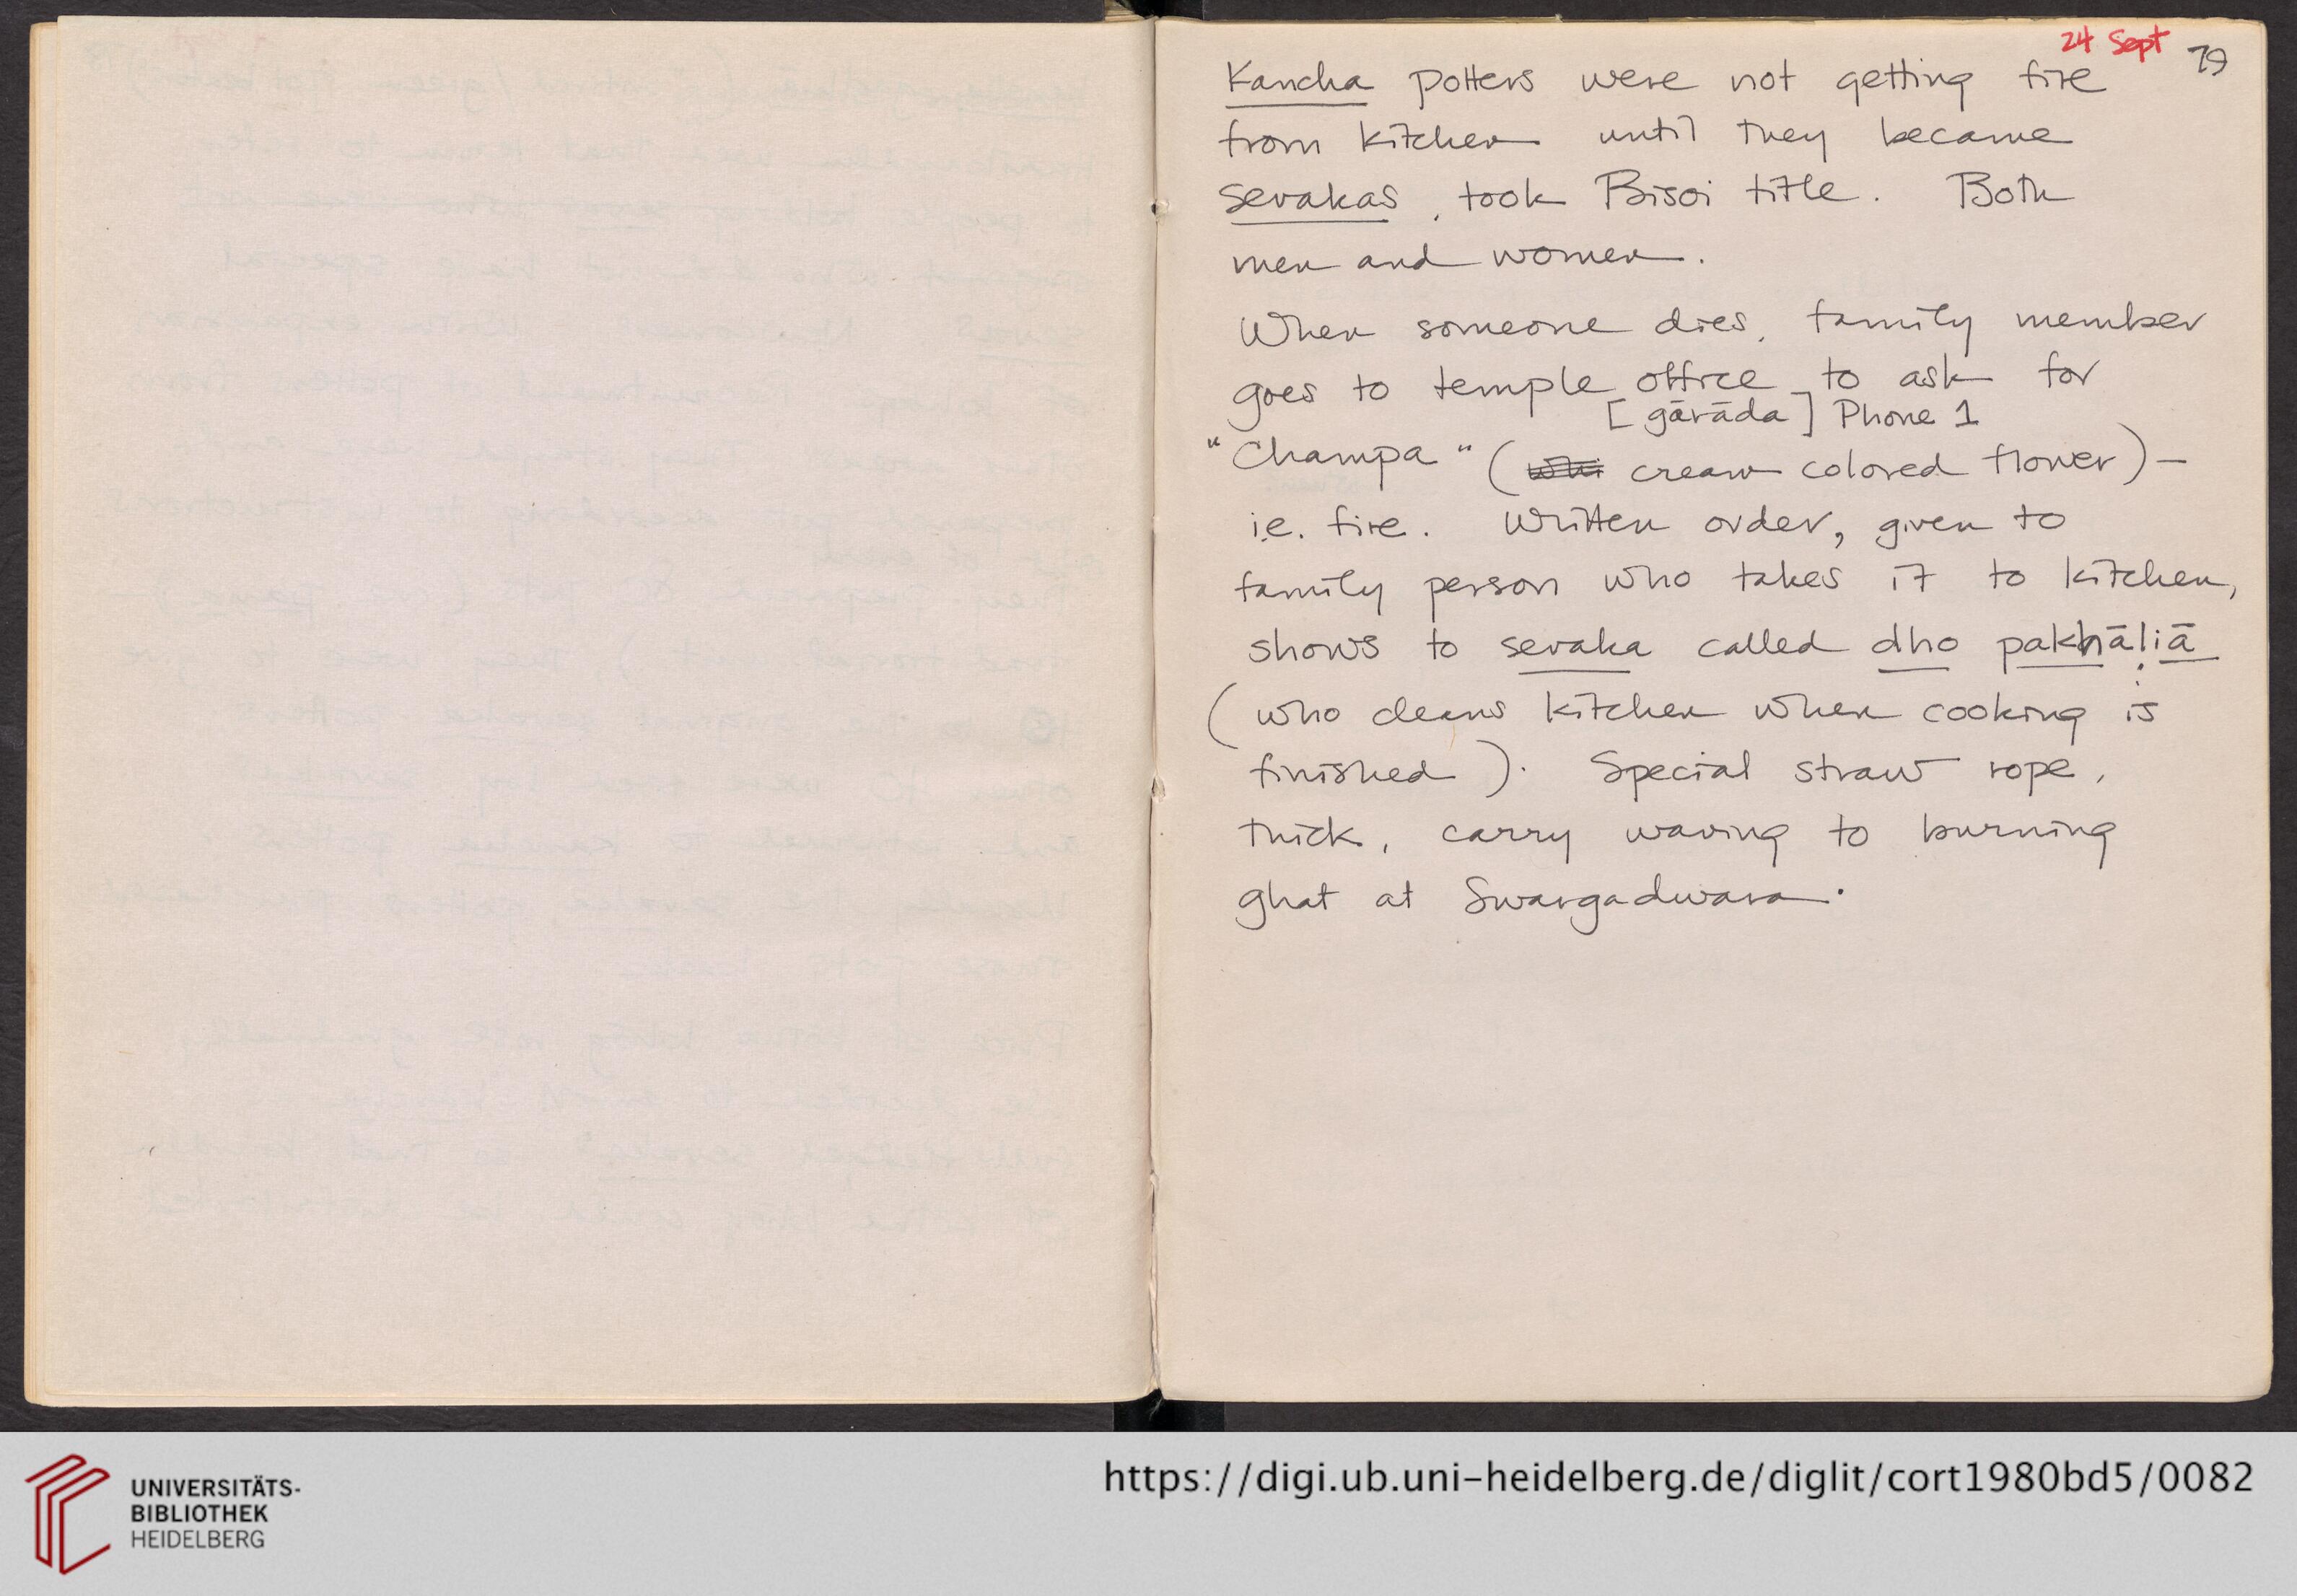 24 Sept 79
Kancha potters were not getting fire
from kitchen until they became
sevakas, took Bisoi title. Both
men and women.
When someone dies, family member
goes to temple office to ask for
[gārāda] Phone 1
"Champa" (whi cream colored flower) —
i.e. fire. Written order, given to
family person who takes it to kitchen,
shows to sevaka called dho pakhāḷiā
(who cleans kitchen when cooking is
finished). Special straw rope,
thick, carry waving to burning
ghat at Swargadwara.
UNIVERSITÄTS-
BIBLIOTHEK
HEIDELBERG
https://digi.ub.uni-heidelberg.de/diglit/cort1980bd5/0082